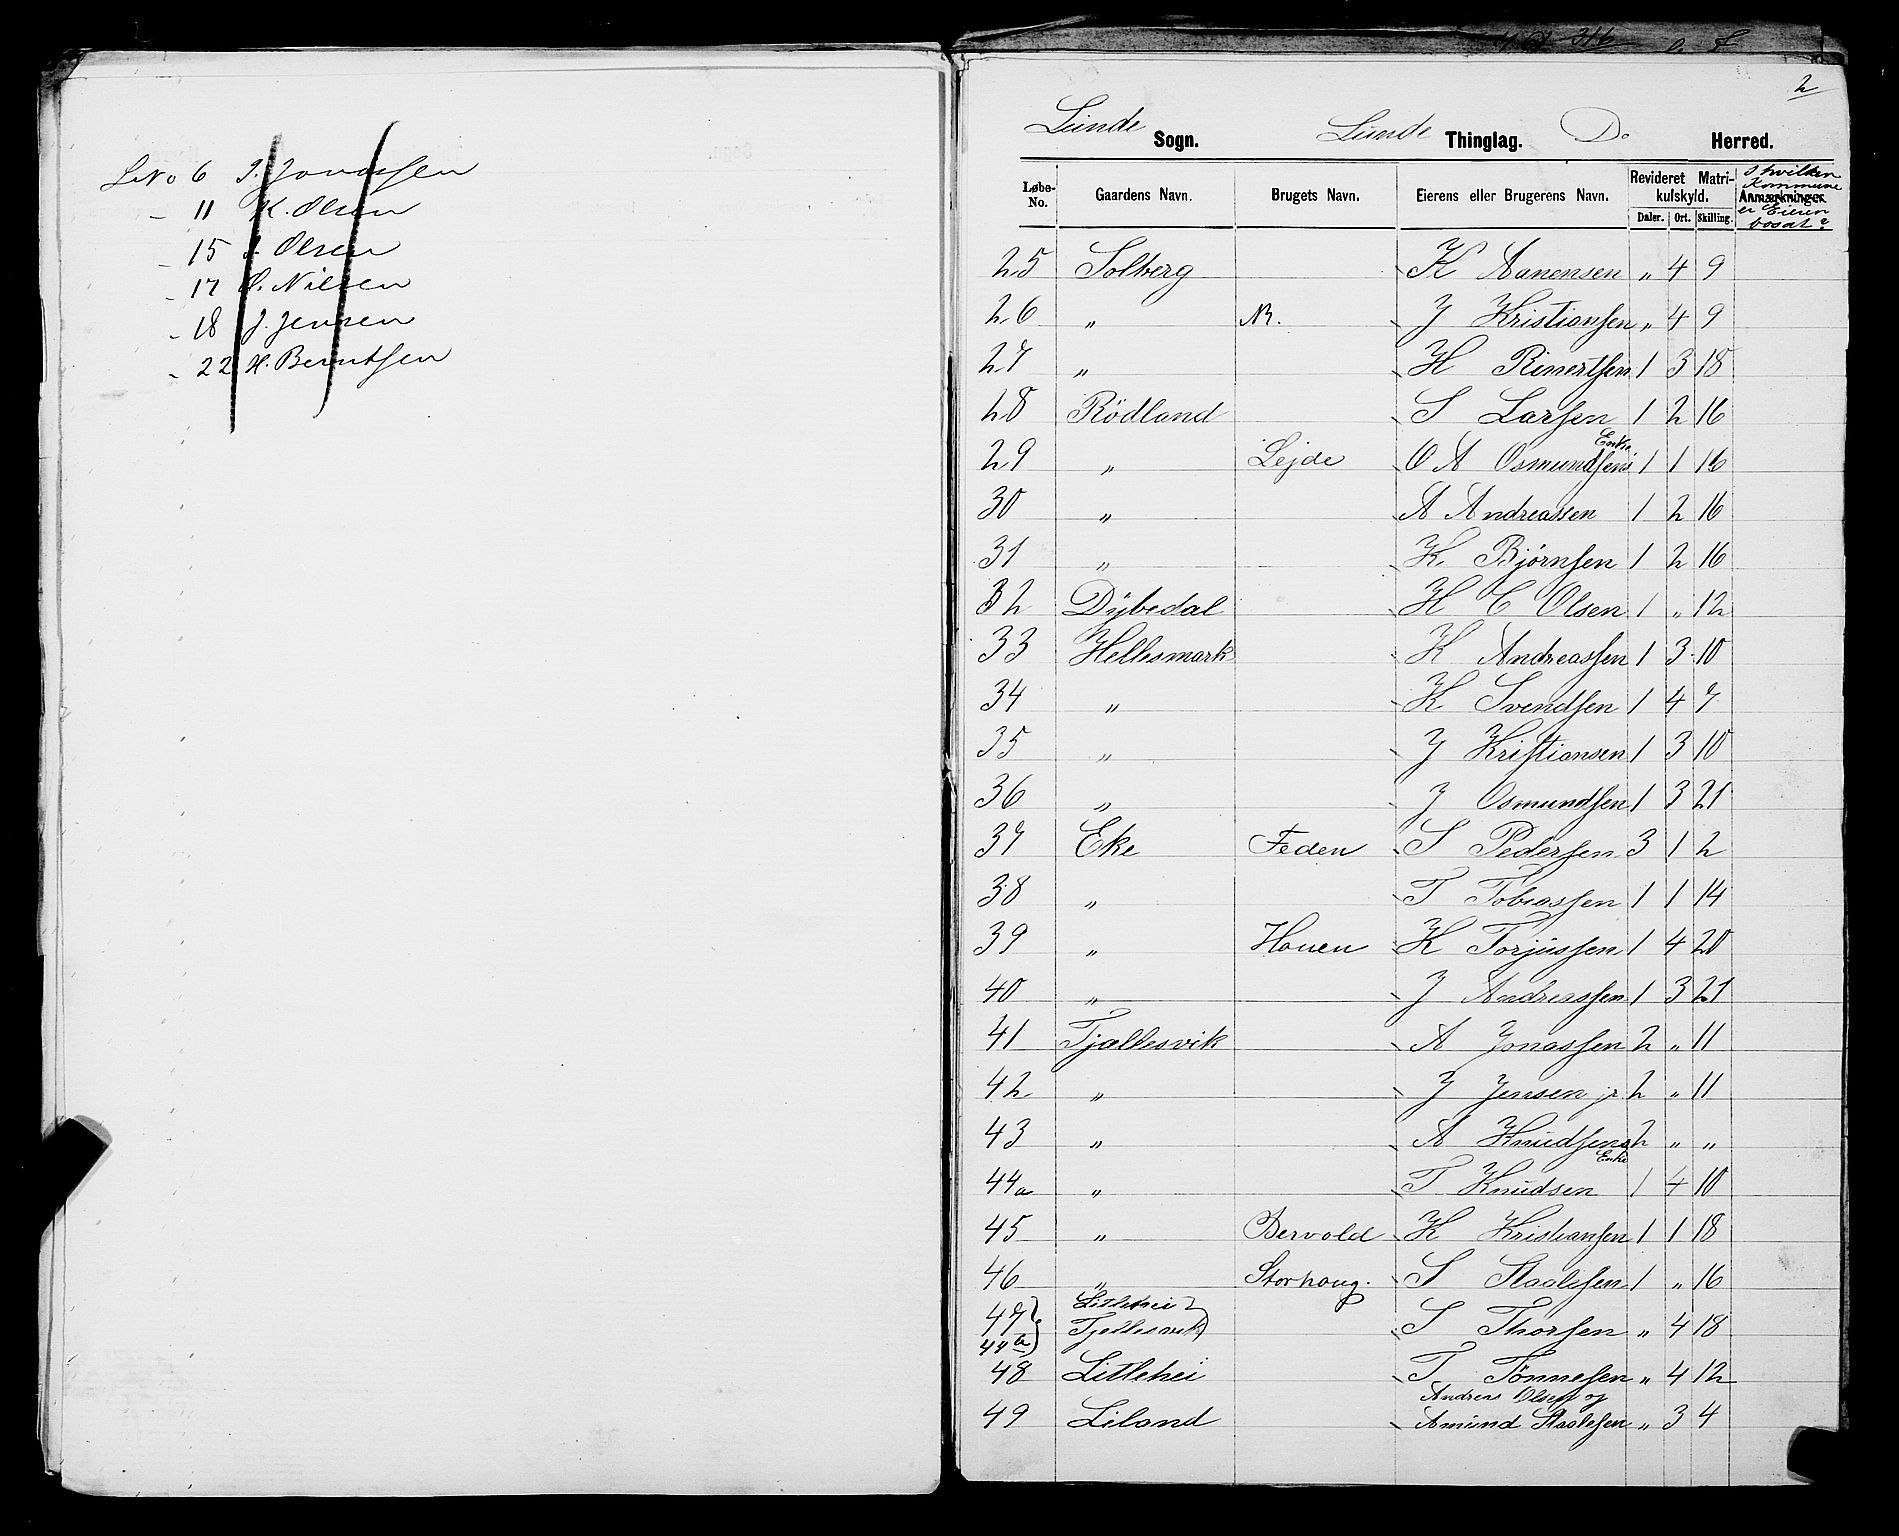 LNo 6 J. Jonassen
" 11 K. Olsen
" 15 Olsen
" 17 O. Nilsen
" 18 J. Jensen
" 22 H. Berntsen
2
Lunde Sogn. Lunde Thinglag. Do Herred.
Løbe-No. Gaardens Navn. Brugets Navn. Eierens eller Brugerens Navn. Revideret Matrikulskyld. Daler. Ort. Skilling. Anmærkninger. I hvilken Kommune er Eieren bosat?
25 Solberg K Aanensen " 4 9
26 " N. J Kristiansen " 4 9
27 " H Rinertsen 1 3 18
28 Rödland S Larsen 1 2 16
29 " Lejde O A Osmundsens Enke 1 1 16
30 " A Andreassen 1 2 16
31 " K Bjørnsen 1 2 16
32 Dybedal H C Olsen 1 " 12
33 Hellesmark K Andreassen 1 3 10
34 " K Svendsen 1 4 7
35 " J Kristiansen 1 3 10
36 " J Osmundsen 1 3 21
37 Eke Feden S Pedersen 3 1 2
38 " T Tobiassen 1 1 14
39 " Houen K Torjussen 1 4 20
40 " J Andreassen 1 3 21
41 Tjællesvik A Jonassen 2 " 11
42 " J Jensen jr 2 " 11
43 " A Knudsens Enke 2 " "
44a " T Knudsen 1 4 10
45 " Bervold K Kristiansen 1 1 18
46 " Storhoug. S Staalesen 1 " 16
47 Litlehei
44b Tjellesvik S Thorsen " 4 18
48 Litlehei T Tønnesen " 4 12
49 Liland Andreas Olsen og Amund Staalesen " 3 4